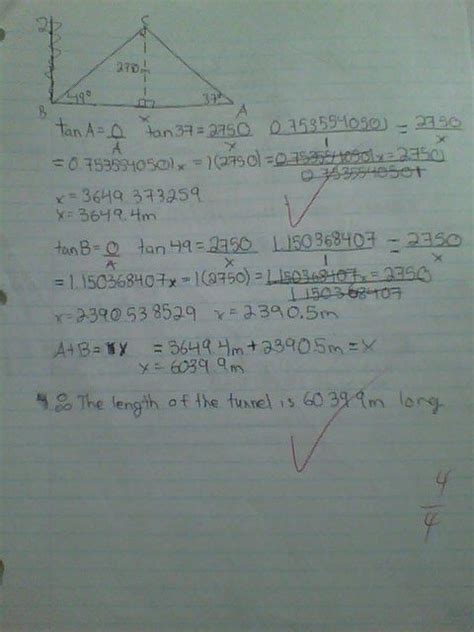 2
C
2750
B 49° x 37° A
tan A = O/A tan 37 = 2750/x 0.7535540501/1 = 2750/x
= 0.7535540501x = 1(2750) = 0.7535540501x = 2750/0.7535540501
x = 3649.373259
x = 3649.4m
tan B = O/A tan 49 = 2750/x 1.150368407/1 = 2750/x
= 1.150368407x = 1(2750) = 1.150368407x = 2750/1.150368407
x = 2390.538529 x = 2390.5m
A+B = x = 3649.4m + 2390.5m = x
x = 6039.9m
∴ The length of the tunnel is 6039.9m long
4/4